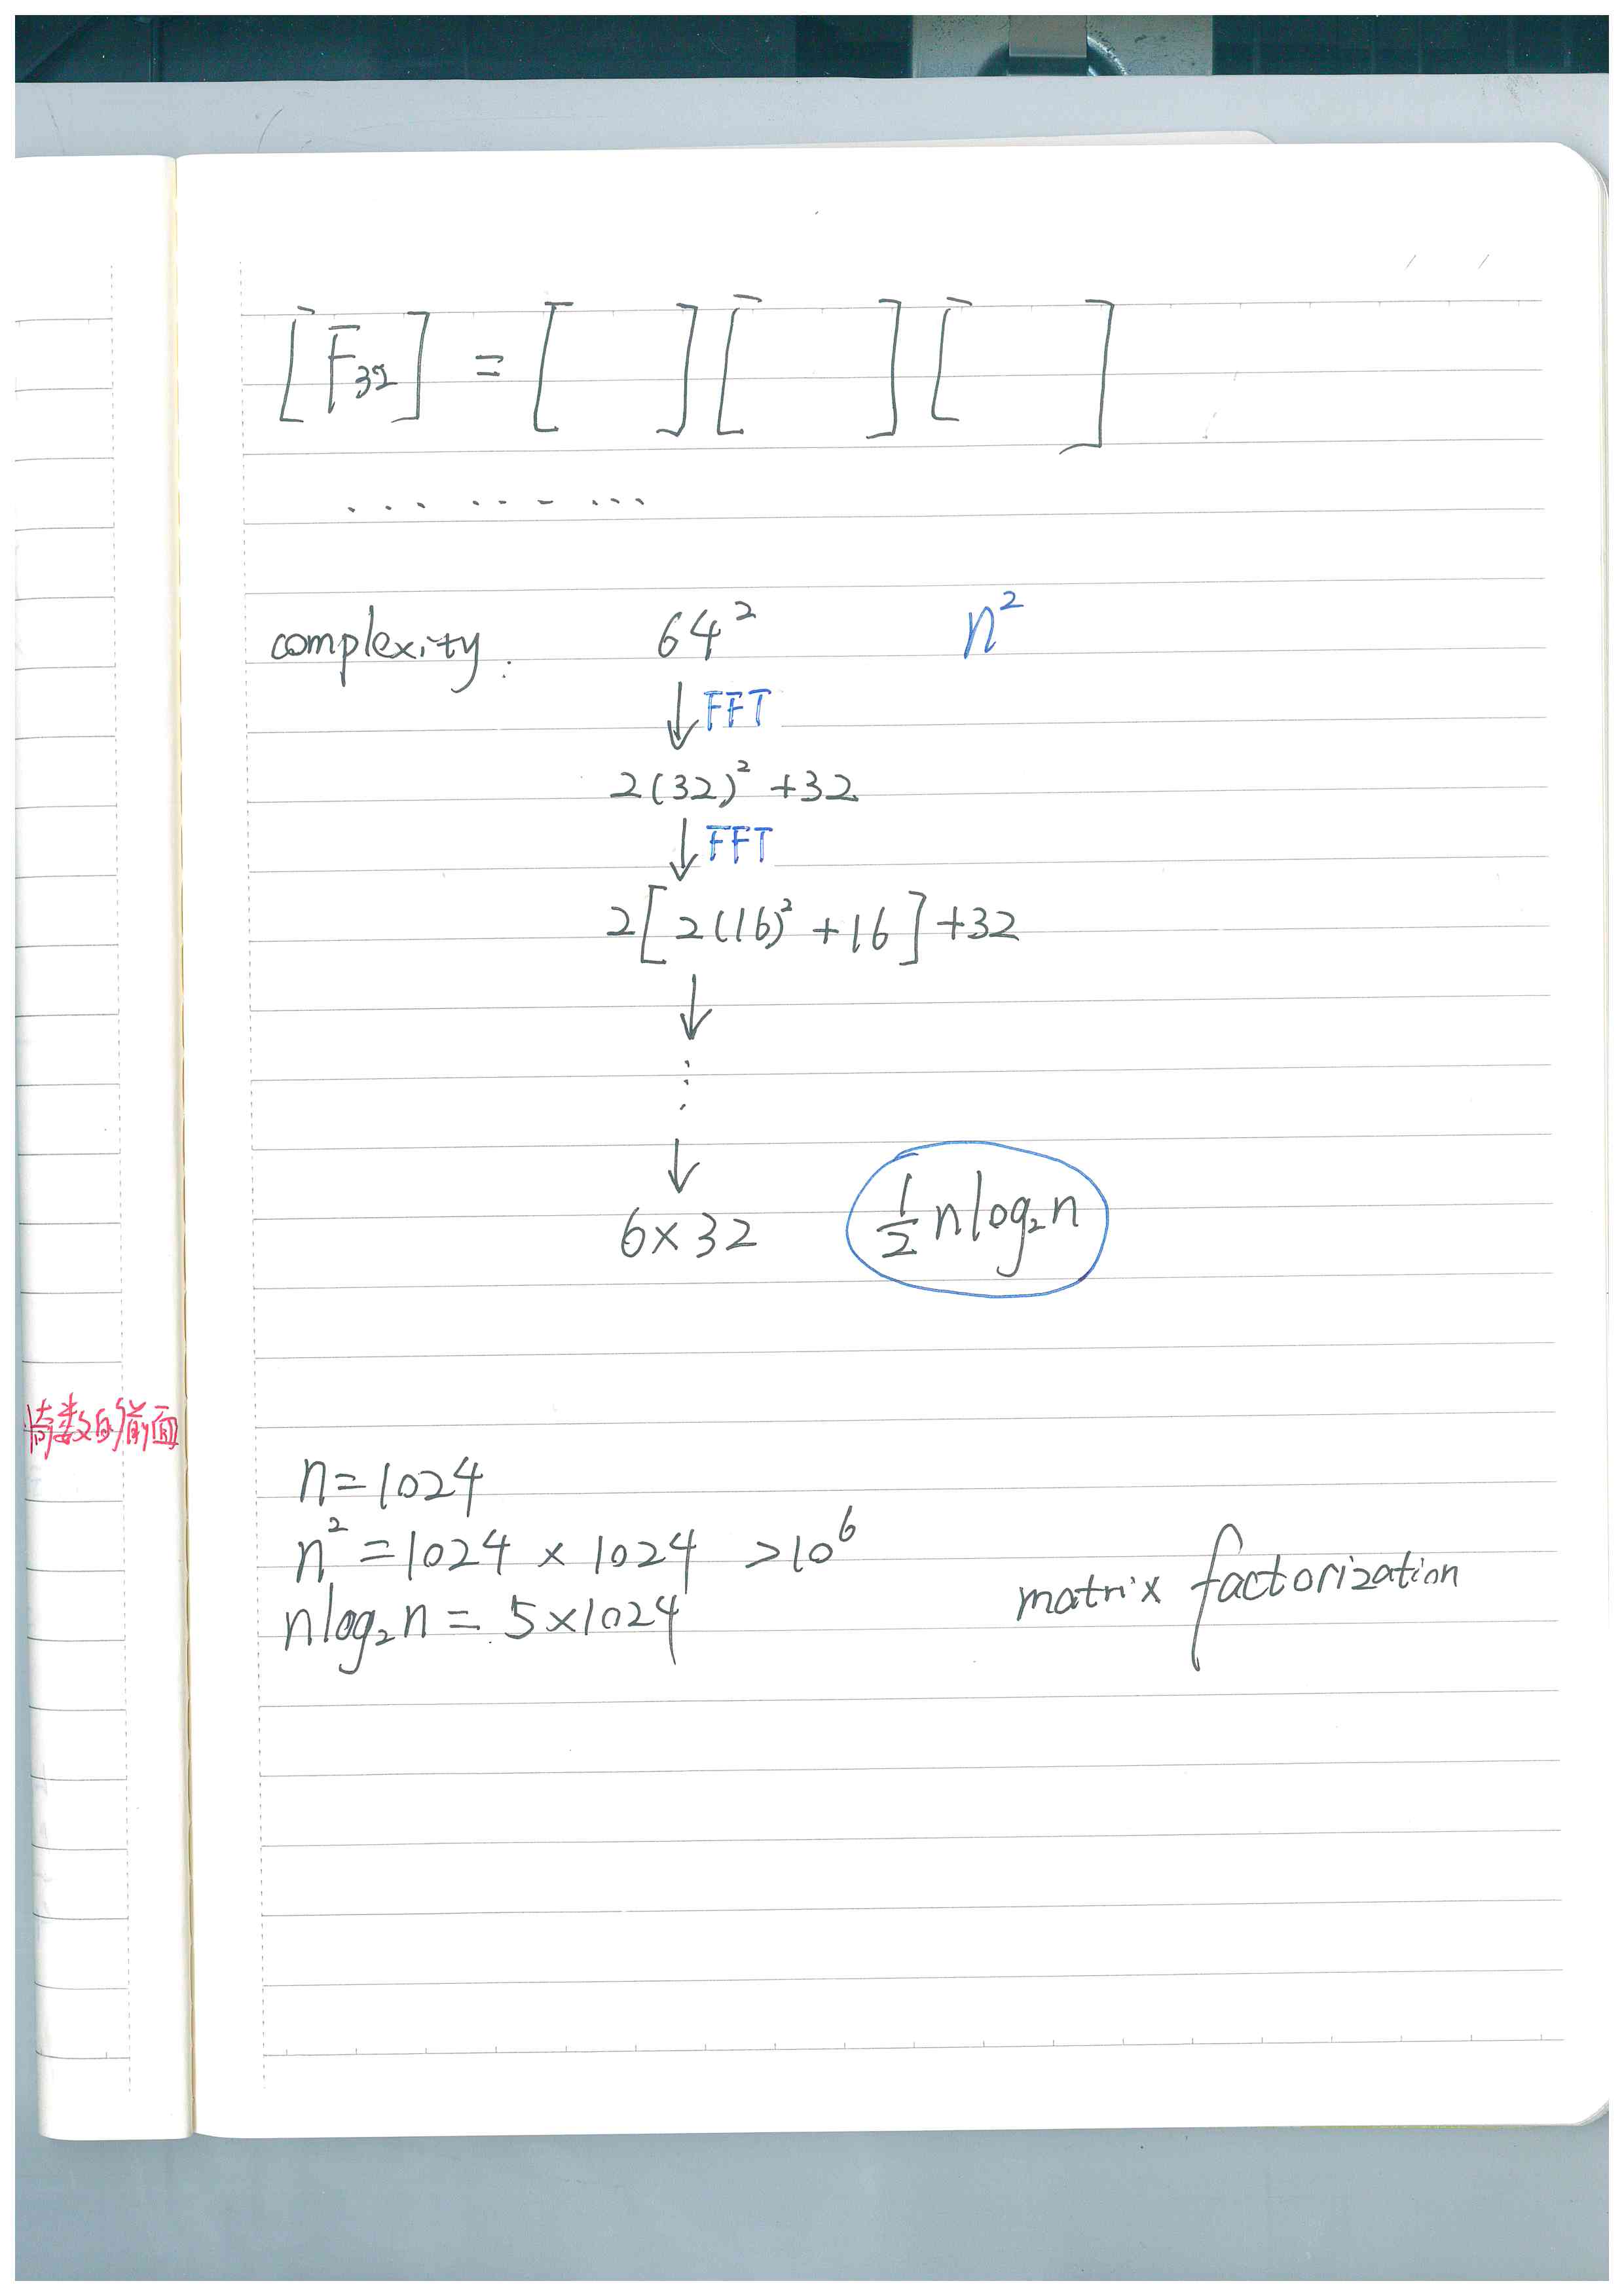 [F₃₂] = [ ] [ ] [ ]
... ... ...
complexity: 64² n²
↓ FFT
2(32)² + 32
↓ FFT
2[2(16)² + 16] + 32
↓
⋮
↓
6 × 32 ½ n log₂ n
奇数的前面
n = 1024
n² = 1024 × 1024 > 10⁶
n log₂ n = 5 × 1024
matrix factorization